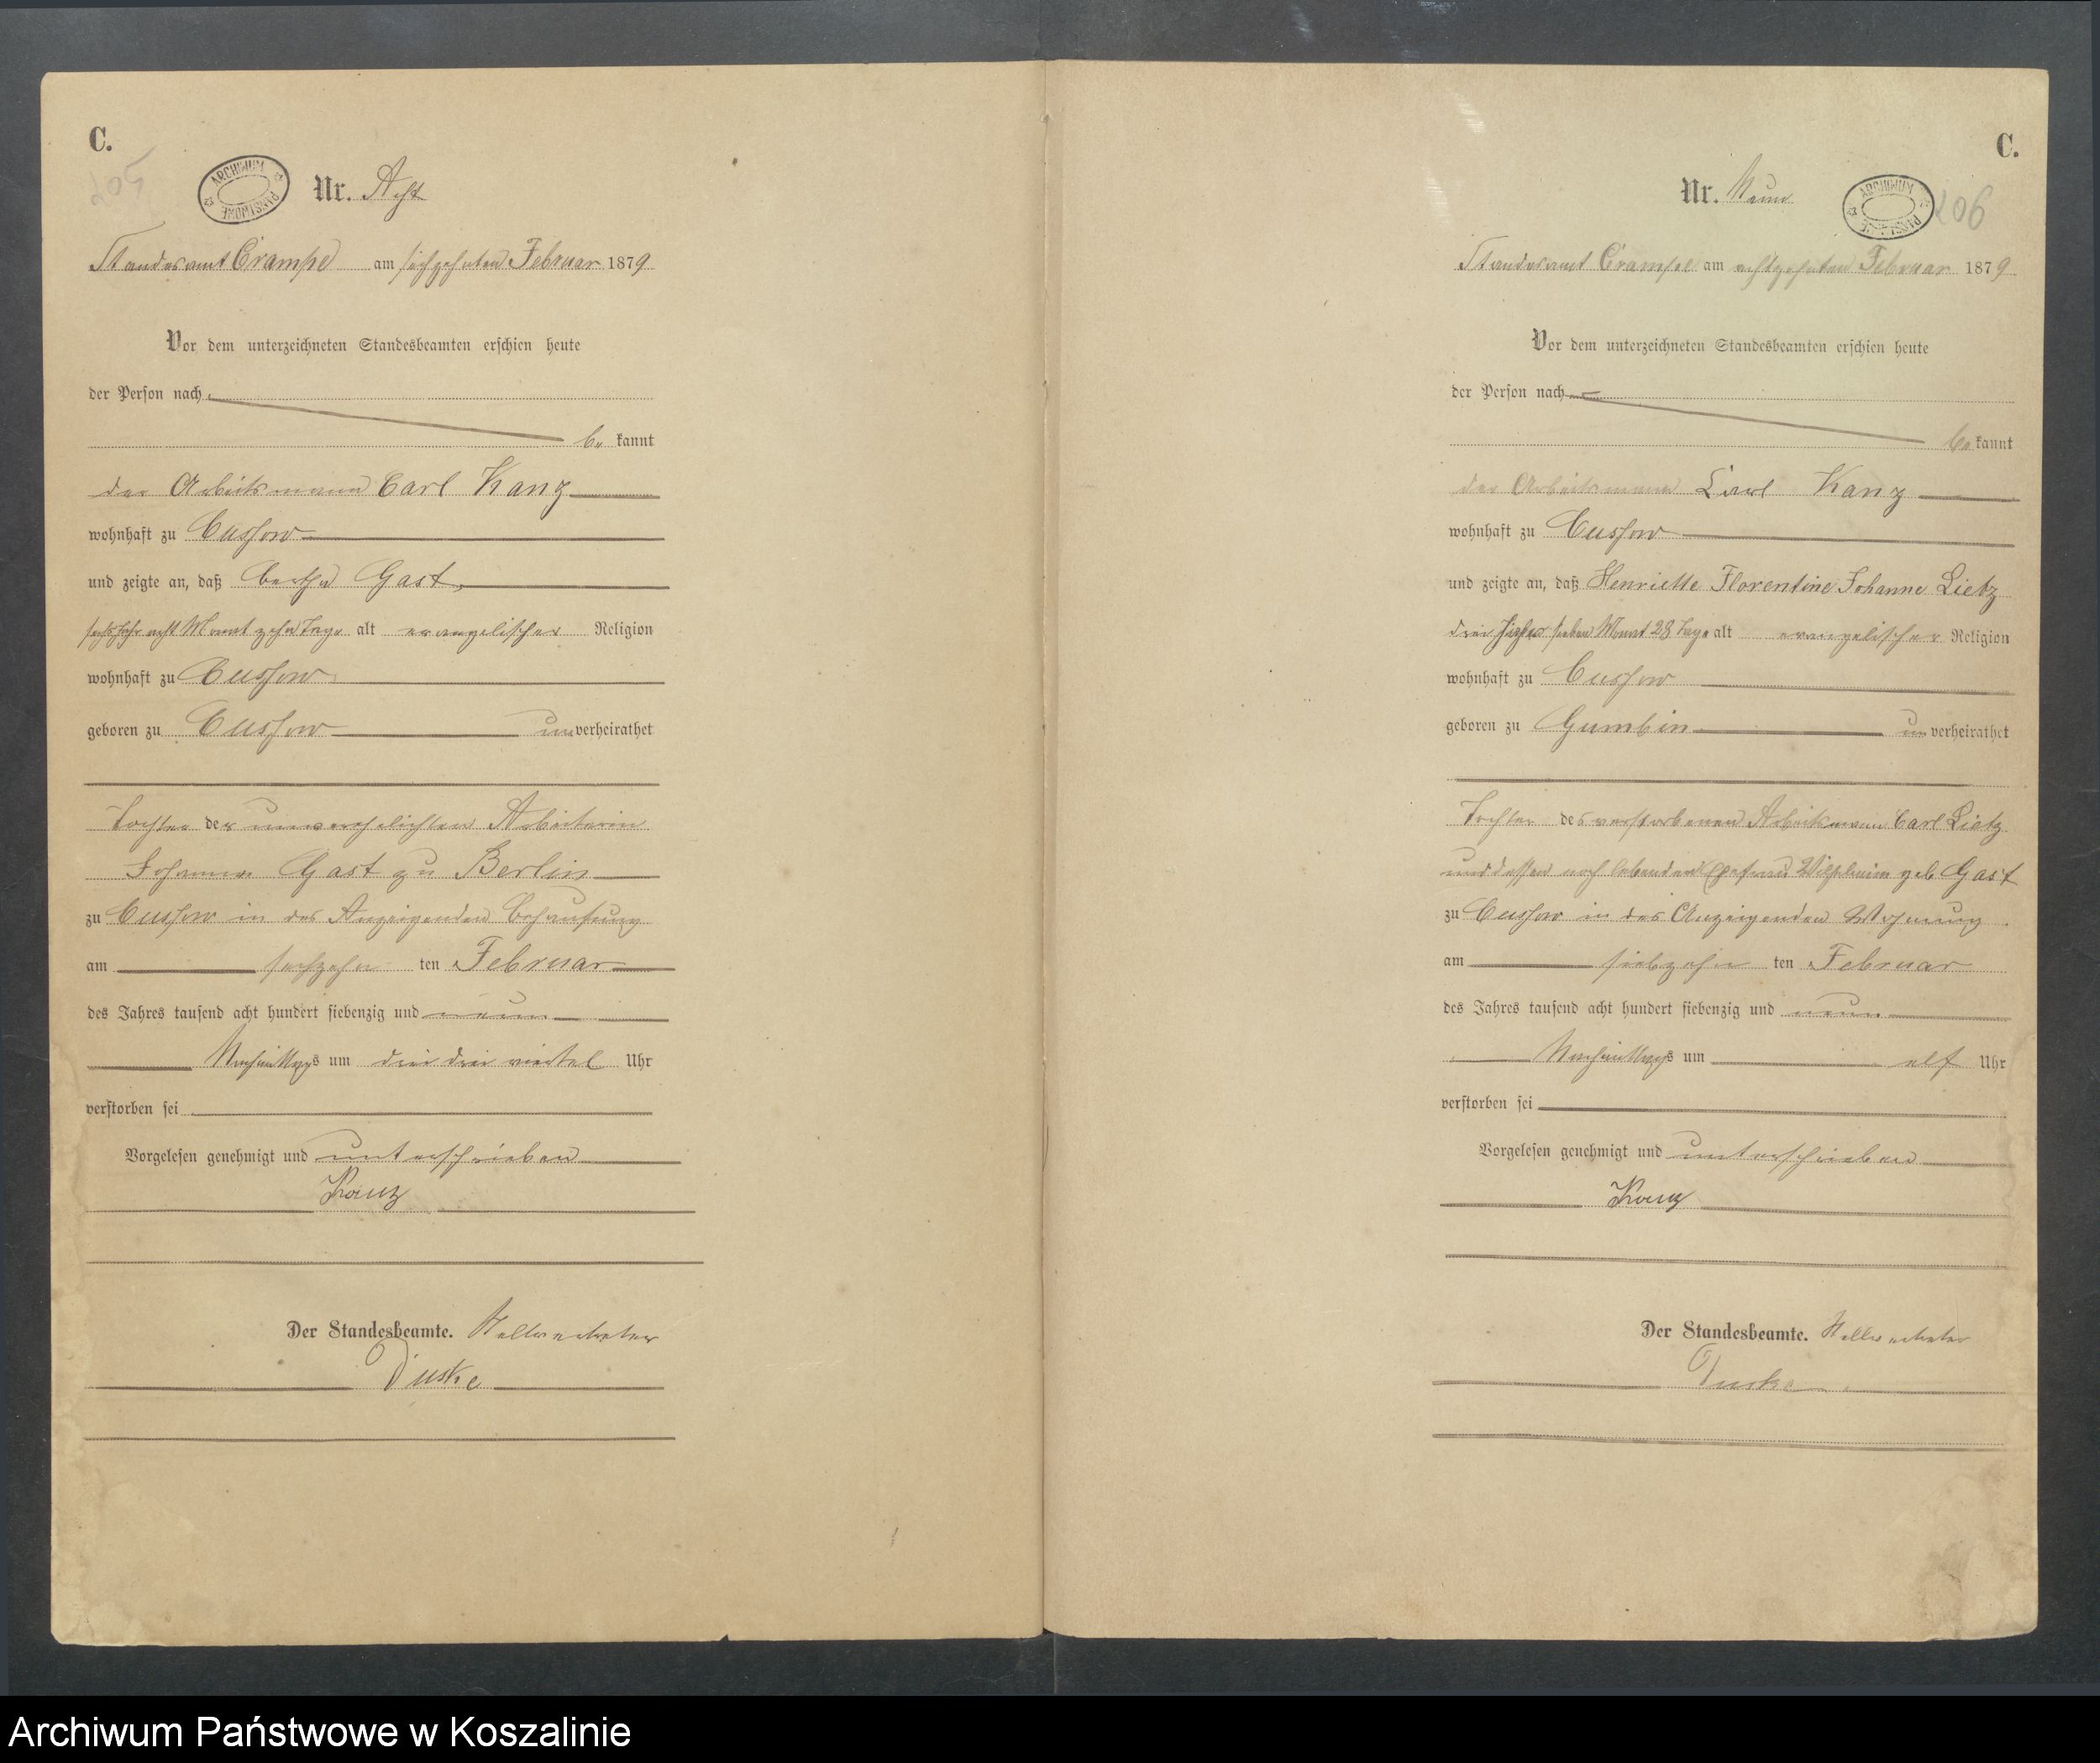 C.
205
ARCHIWUM PAŃSTWOWE
Nr. Acht
Standesamt Crampe am sechzehnten Februar 1879
Vor dem unterzeichneten Standesbeamten erschien heute
der Person nach
bekannt
der Arbeitsmann Carl Kanz
wohnhaft zu Cussow
und zeigte an, daß Bertha Gast,
sechs Jahr acht Monat zehn Tage alt evangelischer Religion
wohnhaft zu Cussow
geboren zu Cussow unverheirathet
Tochter der unverehelichten Arbeiterin
Johanne Gast zu Berlin
zu Cussow in des Anzeigenden Behausung
am sechzehnten Februar
des Jahres tausend acht hundert siebenzig und neun
Nachmittags um drei drei viertel Uhr
verstorben sei
Vorgelesen genehmigt und unterschrieben
Kanz
Der Standesbeamte. Stellvertreter
Duske
C.
Nr. Neun
ARCHIWUM PAŃSTWOWE
206
Standesamt Crampe am achtzehnten Februar 1879
Vor dem unterzeichneten Standesbeamten erschien heute
der Person nach
bekannt
der Arbeitsmann Carl Kanz
wohnhaft zu Cussow
und zeigte an, daß Henriette Florentine Johanne Lietz
drei Jahre sieben Monat 28 Tage alt evangelischer Religion
wohnhaft zu Cussow
geboren zu Gumbin unverheirathet
Tochter des verstorbenen Arbeitsmann Carl Lietz
und dessen noch lebenden Ehefrau Wilhelmine geb Gast
zu Cussow in des Anzeigenden Wohnung
am siebzehnten Februar
des Jahres tausend acht hundert siebenzig und neun
Nachmittags um elf Uhr
verstorben sei
Vorgelesen genehmigt und unterschrieben
Kanz
Der Standesbeamte. Stellvertreter
Duske
Archiwum Państwowe w Koszalinie